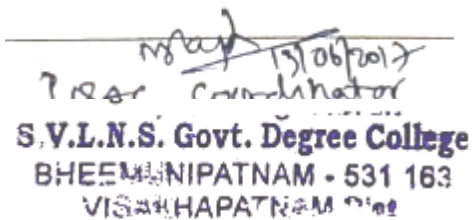 13/06/2017
Coordinator
S.V.L.N.S. Govt. Degree College
BHEEMUNIPATNAM - 531 163
VISAKHAPATNAM